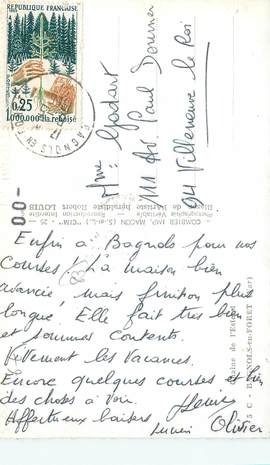 1965 REPUBLIQUE FRANÇAISE
0,25
1.000.000e ha reboisé
POSTES
BAGNOLS EN FORET
Mme Godart
111 Av. Paul Doumer
94 Villeneuve le Roi
COMBIER IMP. MACON (S.-et-L.) "CIM"
Photographie Véritable - Reproduction Interdite
Blason de l'artiste héraldiste Robert LOUIS
BAGNOLS-en-FORET (Var)
-00-
Enfin à Bagnols pour nos
courses ! La maison bien
avancée, mais finition plus
longue. Elle fait très bien
et sommes contents.
Vivement les vacances.
Encore quelques courses et bien
des choses à voir.
Affectueux baisers
Lucien
Olivier